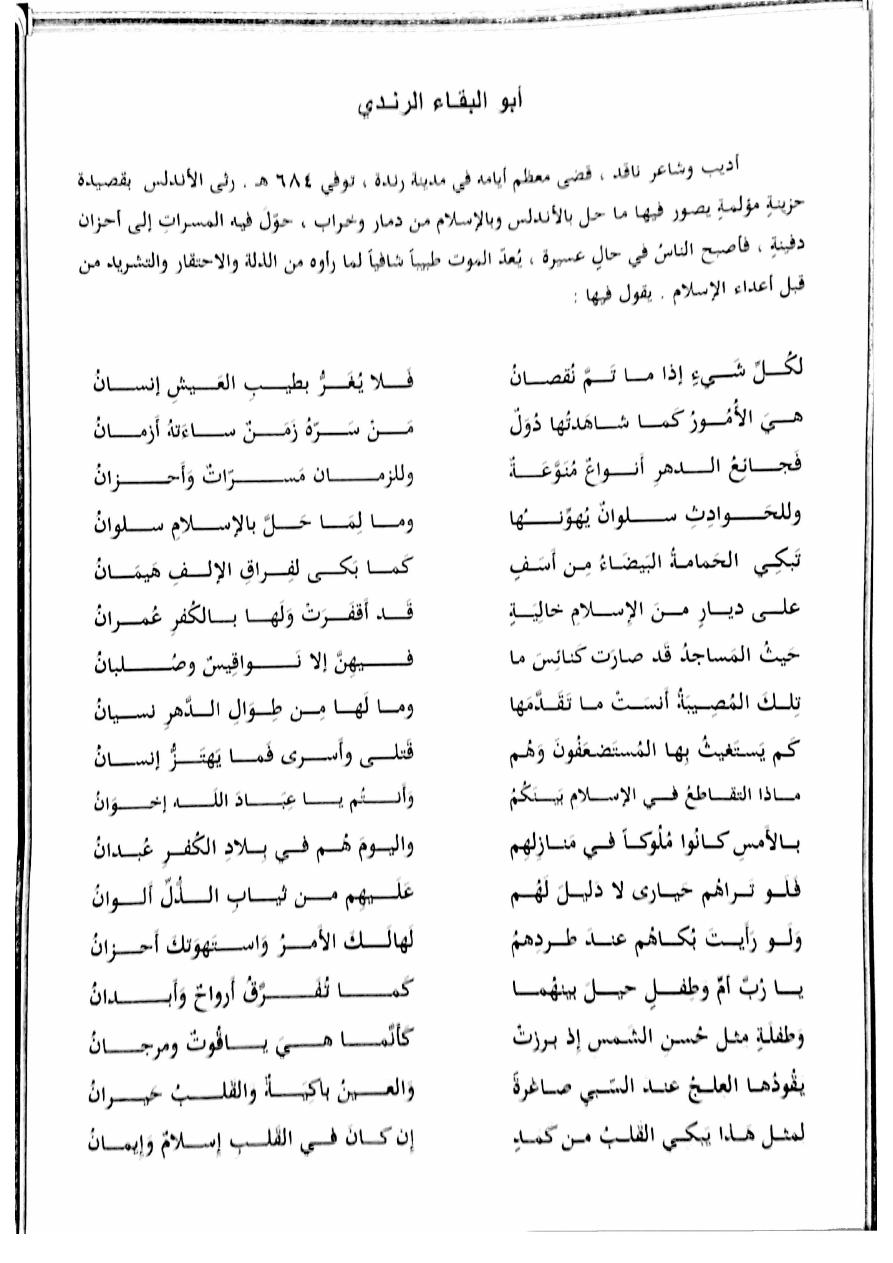 أبو البقاء الرندي
أديب وشاعر ناقد ، قضى معظم أيامه في مدينة رندة ، توفي ٦٨٤ هـ . رثى الأندلس بقصيدة
حزينةٍ مؤلمةٍ يصور فيها ما حل بالأندلس وبالإسلام من دمار وخراب ، حوّلَ فيه المسراتِ إلى أحزان
دفينةٍ ، فأصبح الناسُ في حالٍ عسيرة ، يُعدّ الموت طبيباً شافياً لما رأوه من الذلة والاحتقار والتشريد من
قبل أعداء الإسلام . يقول فيها :
لكُلِّ شَيءٍ إذا ما تَمَّ نُقصانُ فَلا يُغَرُّ بطيبِ العَيشِ إنسانُ
هيَ الأُمُورُ كَما شاهَدتُها دُوَلٌ مَنْ سَرَّهُ زَمَنٌ ساءَتهُ أزمانُ
فَجائعُ الدهرِ أنواعٌ مُنَوَّعَةٌ وللزمان مَسرّاتٌ وَأَحزانُ
وللحَوادِثِ سلوانٌ يُهوِّنُها وما لِمَا حَلَّ بالإسلامِ سلوانُ
تَبكِي الحَمامةُ البَيضَاءُ مِن أَسَفٍ كَما بَكى لفِراقِ الإلفِ هَيمَانُ
على ديارٍ منَ الإسلام خاليَةٍ قَد أقفَرَتْ وَلَها بالكُفرِ عُمرانُ
حَيثُ المَساجدُ قَد صارَت كَنائسَ ما فيهِنَّ إلا نَواقيسٌ وصُلبانُ
تِلكَ المُصِيبَةُ أَنسَتْ ما تَقَدَّمَها وما لَها مِن طِوَالِ الدَّهرِ نسيانُ
كَم يَستَغيثُ بِها المُستَضعَفُونَ وَهُم قَتلى وأَسرى فَما يَهتَزُّ إنسانُ
ماذا التقاطعُ في الإسلامِ بَينَكُمُ وَأنتُم يا عِبَادَ اللَه إخوَانُ
بالأَمسِ كانُوا مُلُوكاً في مَنازلِهِم واليومَ هُم في بِلادِ الكُفرِ عُبدانُ
فَلو تَراهُم حَيارى لا دَليلَ لَهُم عَلَيهِم من ثيابِ الذُّلِّ ألوانُ
وَلَو رَأَيتَ بُكاهُم عندَ طردِهمُ لَهالَكَ الأَمرُ وَاستَهوَتكَ أَحزانُ
يا رُبَّ أمٍّ وطِفلٍ حيلَ بينهُما كَما تُفَرَّقُ أرواحٌ وَأَبدانُ
وَطفلَةٍ مثل حُسنِ الشَمسِ إذ برزتْ كَأنَّما هيَ ياقُوتٌ ومرجانُ
يَقُودُها العلجُ عندَ السَّبي صاغرةً والعينُ باكيَةٌ والقلبُ حَيرانُ
لمثل هَذا يَبكي القلبُ من كمَدٍ إن كانَ في القَلبِ إسلامٌ وَإيمانُ